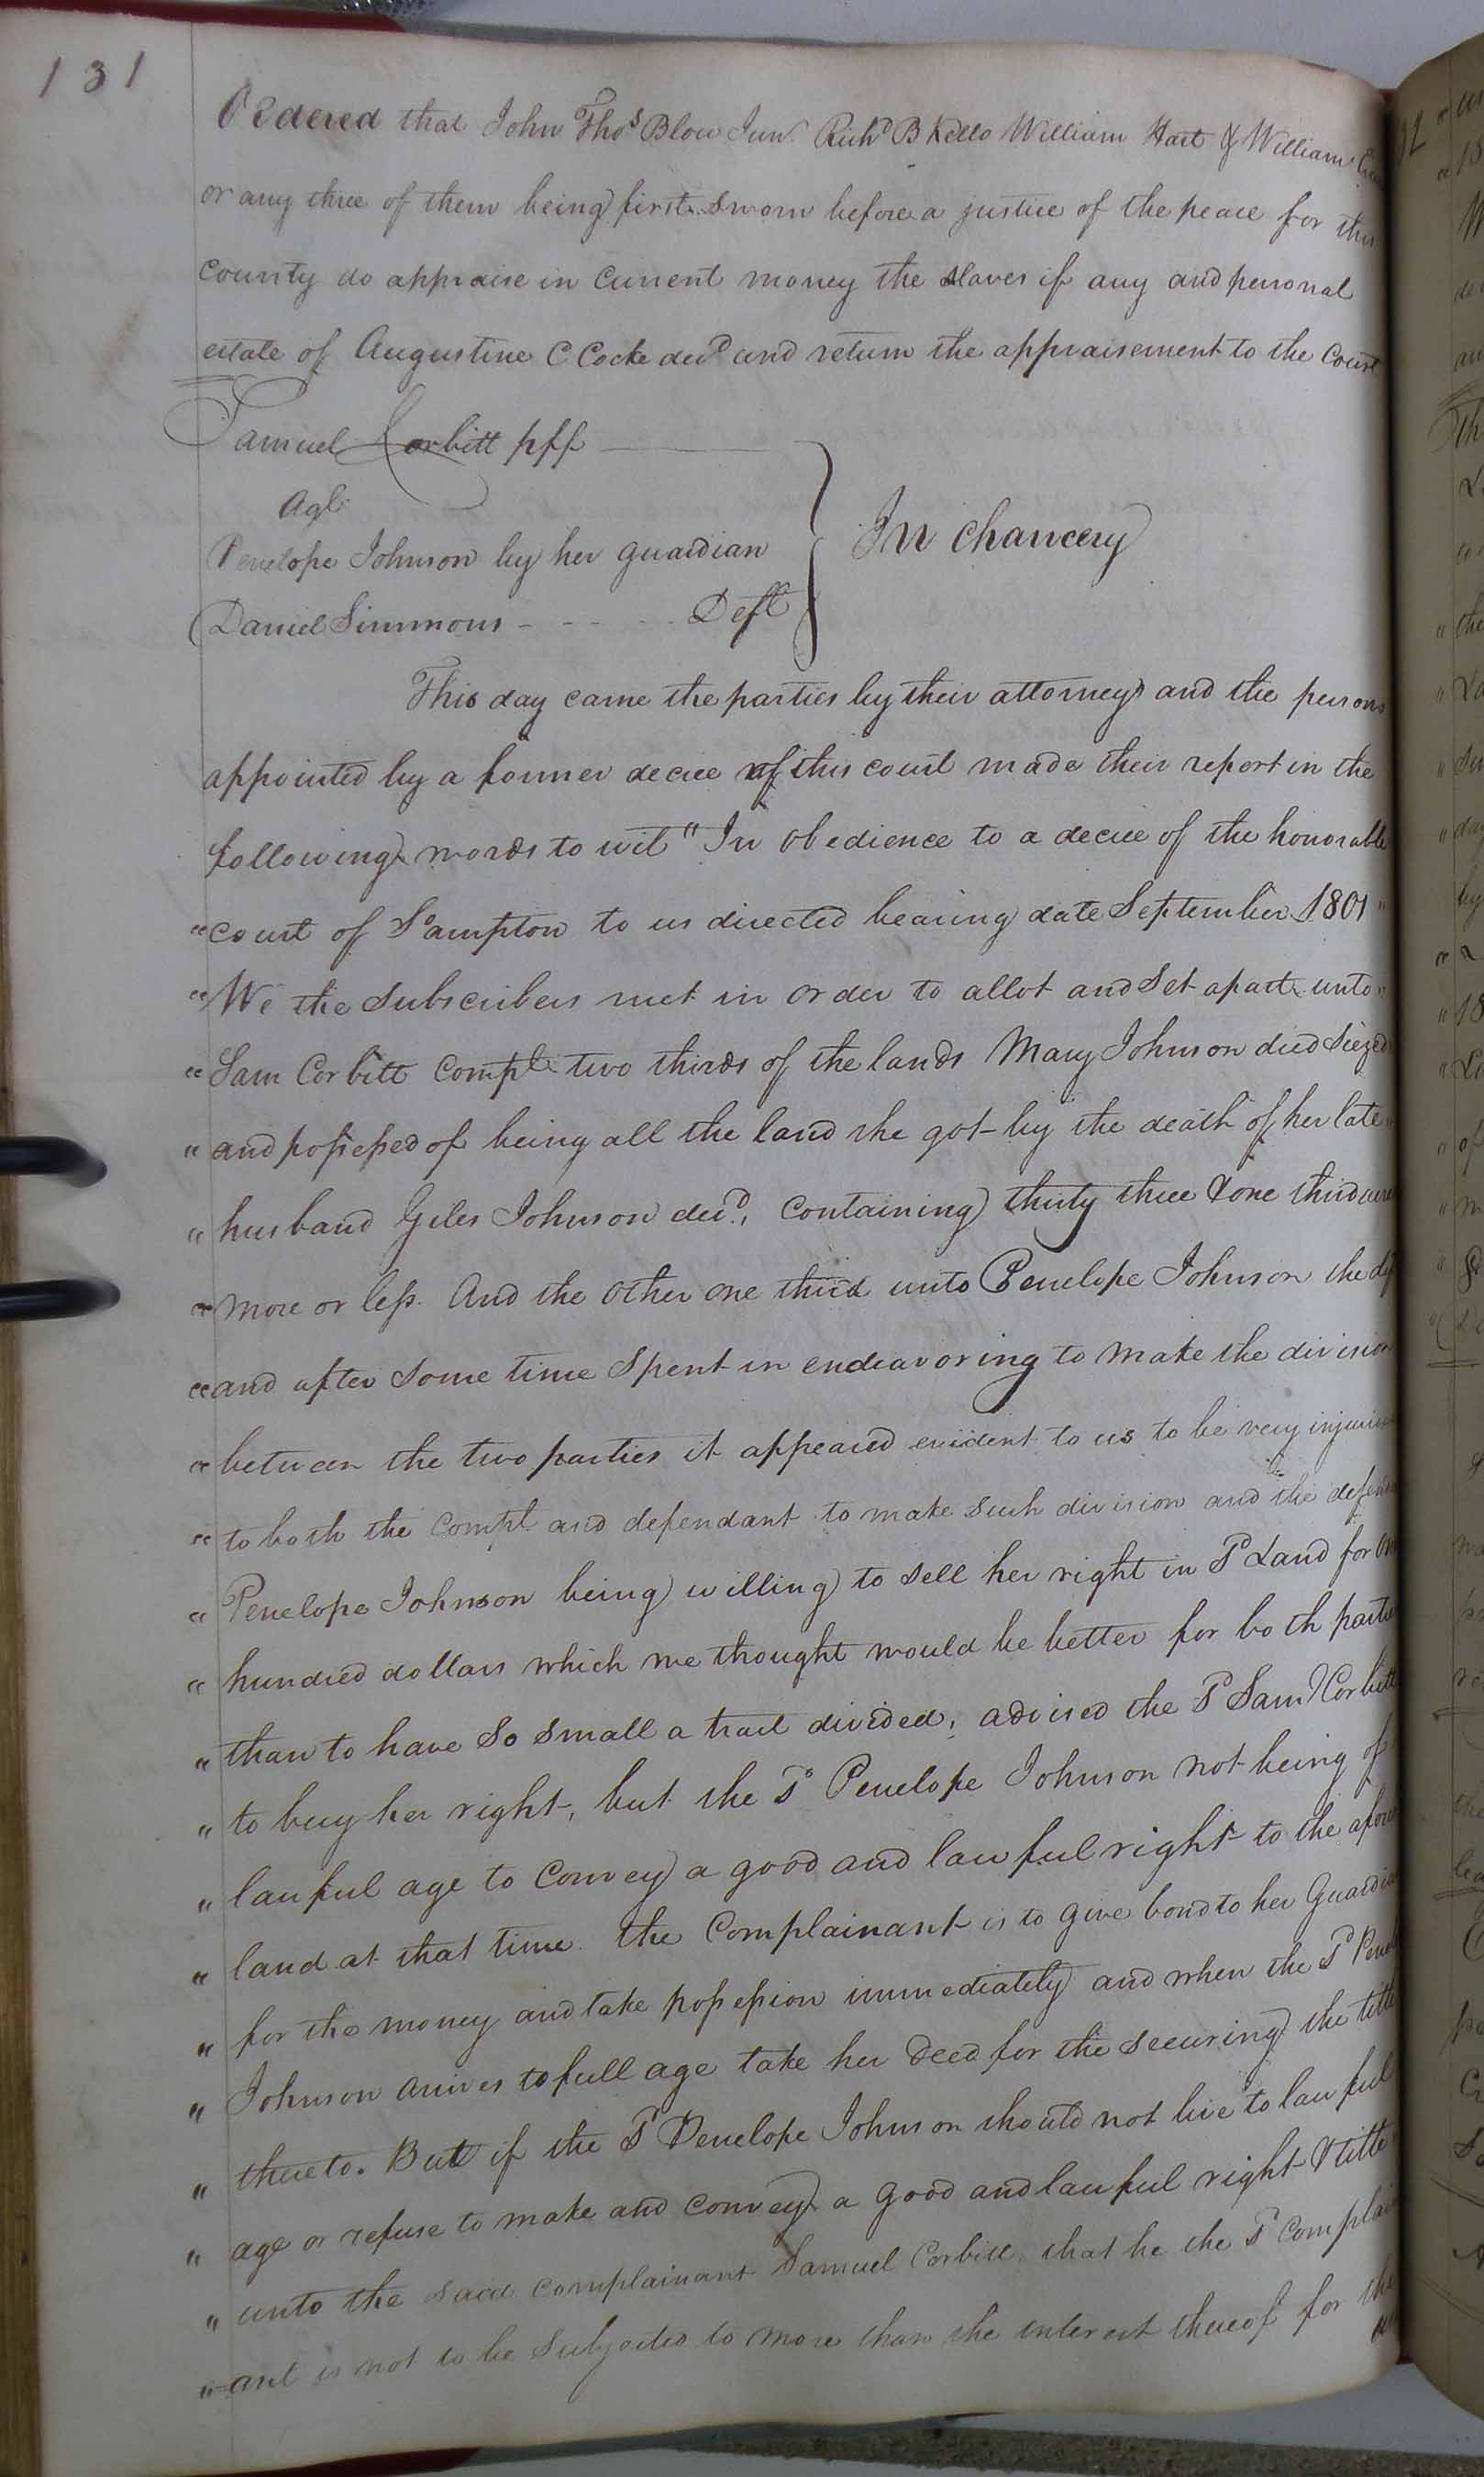 131
Ordered that John Thos Blow Jun. Richd B Kello William Hart & William
or any three of them being first sworn before a justice of the peace for this
county do appraise in current money the slaves if any and personal
estate of Augustine C Cocke decd and return the appraisement to the Court
Samuel Corbitt plf
Agt
Penelope Johnson by her guardian
Daniel Simmons - - - - - Deft
In chancery
This day came the parties by their attorneys and the persons
appointed by a former decree of this court made their report in the
following words to wit " In obedience to a decree of the honorable
" court of So ampton to us directed bearing date September 1801 "
" We the subscribers met in order to allot and set apart unto "
" Sam Corbitt Complt two thirds of the lands Mary Johnson died siezed
" and possessed of being all the land she got by the death of her late "
" husband Giles Johnson decd, containing thirty three & one third acres
" more or less. And the other one third unto Penelope Johnson the
" and after some time spent in endeavoring to make the division
" between the two parties it appeared evident to us to be very
" to both the Complt and defendant to make such division and the
" Penelope Johnson being willing to sell her right in Sd Land for
" hundred dollars which we thought would be better for both
" than to have so small a tract divided, advised the Sd Saml Corbitt
" to buy her right, but the Sd Penelope Johnson not being of
" lawful age to convey a good and lawful right to the
" land at that time. the Complainant is to give bond to her Guardian
" for the money and take possession immediately and when the Sd
" Johnson arrives to full age take her Deed for the securing the title
" thereto. But if the Sd Penelope Johnson should not live to lawful
" age or refuse to make and convey a good and lawful right & title
" unto the said complainant Samuel Corbitt, that he the Sd Complain
" =ant is not to be subjected to more than the interest thereof for the